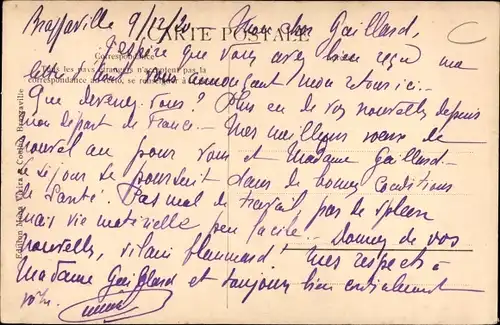 Brazzaville 9/12/20 Mon cher Gaillard,
CARTE POSTALE
J'espère que vous avez bien reçu ma
Correspondance
Tous les pays étrangers n'acceptent pas la
correspondance au recto, se renseigner à la
lettre vous annonçant mon retour ici.
Que devenez-vous? Plus eu de vos nouvelles depuis
mon départ de France. Mes meilleurs vœux de
nouvel an pour vous et Madame Gaillard.
Le séjour se poursuit dans de bonnes conditions
de santé. Pas mal de travail pas de spleen
mais vie matérielle peu facile. Donnez de vos
nouvelles, vilain flemmard. Mes respects à
Madame Gaillard et toujours bien cordialement
vôtre.
Brazzaville